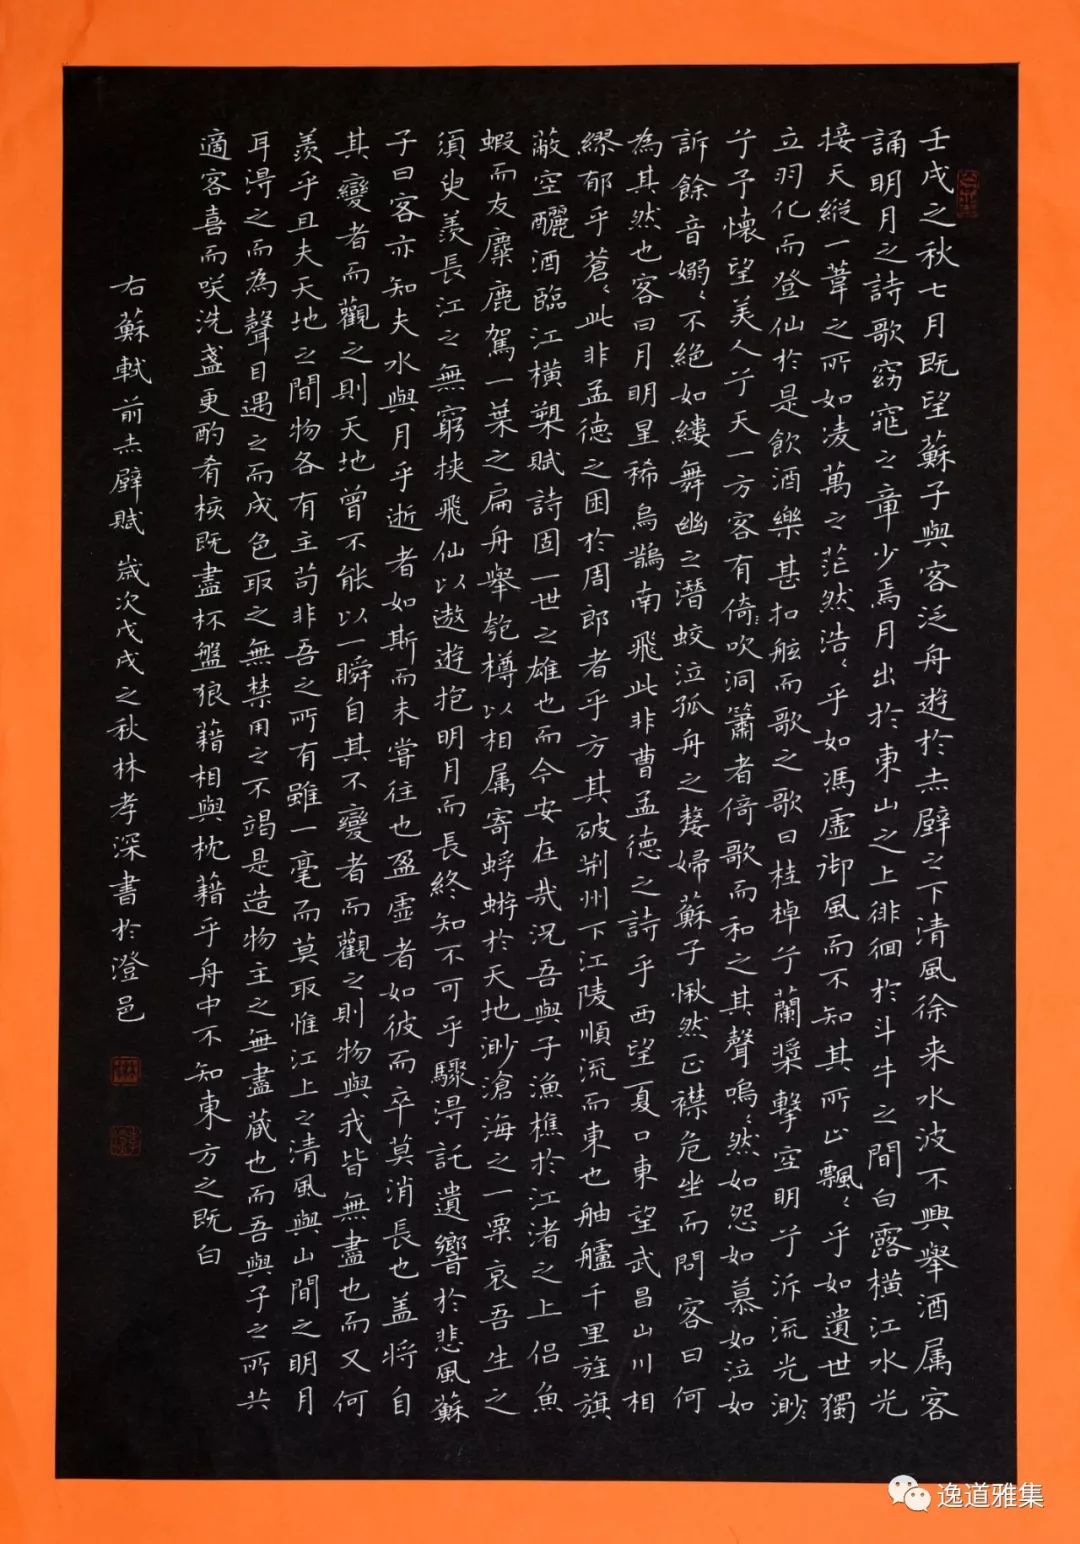 壬戌之秋七月既望蘇子與客泛舟遊於赤壁之下清風徐来水波不興舉酒属客
誦明月之詩歌窈窕之章少焉月出於東山之上徘徊於斗牛之間白露橫江水光
接天縱一葦之所如凌萬之茫然浩〻乎如馮虛御風而不知其所止飄〻乎如遺世獨
立羽化而登仙於是飲酒樂甚扣舷而歌之歌曰桂棹兮蘭槳擊空明兮泝流光渺〻
兮予懷望美人兮天一方客有倚〻吹洞簫者倚歌而和之其聲嗚〻然如怨如慕如泣如
訴餘音嫋〻不絕如縷舞幽之潛蛟泣孤舟之嫠婦蘇子愀然正襟危坐而問客曰何
為其然也客曰月明星稀烏鵲南飛此非曹孟德之詩乎西望夏口東望武昌山川相
繆郁乎蒼〻此非孟德之困於周郎者乎方其破荆州下江陵順流而東也舳艫千里旌旗
蔽空釃酒臨江橫槊賦詩固一世之雄也而今安在哉況吾與子漁樵於江渚之上侣魚
蝦而友麋鹿駕一葉之扁舟舉匏樽以相属寄蜉蝣於天地渺滄海之一粟哀吾生之
須臾羨長江之無窮挟飛仙以遨遊抱明月而長終知不可乎驟得託遺響於悲風蘇
子曰客亦知夫水與月乎逝者如斯而未嘗往也盈虛者如彼而卒莫消長也盖將自
其變者而觀之則天地曾不能以一瞬自其不變者而觀之則物與我皆無盡也而又何
羨乎且夫天地之間物各有主苟非吾之所有雖一毫而莫取惟江上之清風與山間之明月
耳得之而為聲目遇之而成色取之無禁用之不竭是造物主之無盡蔵也而吾與子之所共
適客喜而咲洗盞更酌肴核既盡杯盤狼藉相與枕藉乎舟中不知東方之既白
右蘇軾前赤壁賦 歲次戊戌之秋林孝深書於澄邑
逸道雅集